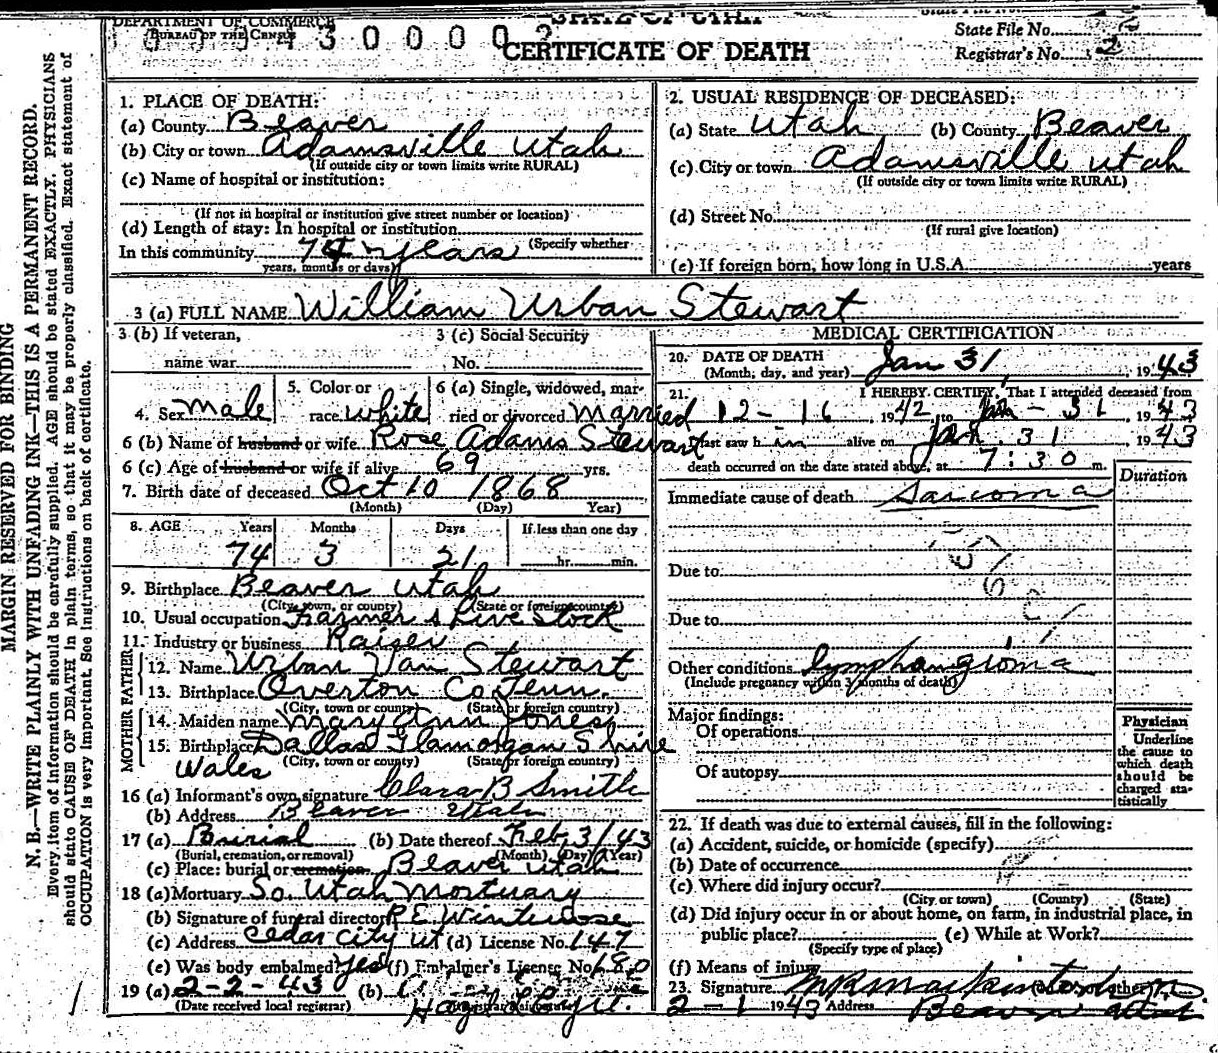 MARGIN RESERVED FOR BINDING
N. B.—WRITE PLAINLY WITH UNFADING INK—THIS IS A PERMANENT RECORD.
Every item of information should be carefully supplied. AGE should be stated EXACTLY. PHYSICIANS
should state CAUSE OF DEATH in plain terms, so that it may be properly classified. Exact statement of
OCCUPATION is very important. See instructions on back of certificate.
DEPARTMENT OF COMMERCE
BUREAU OF THE CENSUS
STATE OF UTAH
CERTIFICATE OF DEATH
State File No.
Registrar's No. 2
1. PLACE OF DEATH:
(a) County Beaver
(b) City or town Adamsville Utah
(If outside city or town limits write RURAL)
(c) Name of hospital or institution:
(If not in hospital or institution give street number or location)
(d) Length of stay: In hospital or institution
(Specify whether
In this community 74 years
years, months or days)
2. USUAL RESIDENCE OF DECEASED:
(a) State Utah (b) County Beaver
(c) City or town Adamsville Utah
(If outside city or town limits write RURAL)
(d) Street No.
(If rural give location)
(e) If foreign born, how long in U.S.A. years
3 (a) FULL NAME William Urban Stewart
3 (b) If veteran, name war
3 (c) Social Security No.
4. Sex Male
5. Color or race White
6 (a) Single, widowed, married or divorced Married
6 (b) Name of husband or wife Rose Adams Stewart
6 (c) Age of husband or wife if alive 69 yrs.
7. Birth date of deceased Oct 10 1868
(Month) (Day) Year)
8. AGE Years Months Days If less than one day
74 3 21 hr. min.
9. Birthplace Beaver Utah
(City, town, or county) (State or foreign country)
10. Usual occupation Farmer & Live Stock
11. Industry or business Raiser
FATHER
12. Name Urban Van Stewart
13. Birthplace Overton Co. Tenn.
(City, town or county) (State or foreign country)
MOTHER
14. Maiden name Mary Ann Jones
15. Birthplace Dallas Glamorgan Shire
Wales (City, town or county) (State or foreign country)
16 (a) Informant's own signature Clara B Smith
(b) Address Beaver Utah
17 (a) Burial (b) Date thereof Feb 3/43
(Burial, cremation, or removal) (Month) (Day) (Year)
(c) Place: burial or cremation Beaver Utah
18 (a) Mortuary So. Utah Mortuary
(b) Signature of funeral director
(c) Address Cedar City Ut (d) License No. 147
(e) Was body embalmed? Yes (f) Embalmer's License No. 680
19 (a) 2-2-43 (b)
(Date received local registrar)
MEDICAL CERTIFICATION
20. DATE OF DEATH Jan 31, 1943
(Month, day, and year)
21. I HEREBY CERTIFY, That I attended deceased from
12-16 1942 to Jan - 31 1943
I last saw him alive on Jan. 31 1943
death occurred on the date stated above, at 7:30 m.
Duration
Immediate cause of death Sarcoma
Due to
Due to
Other conditions Lymphangioma
(Include pregnancy within 3 months of death)
Major findings:
Of operations
Of autopsy
Physician
Underline
the cause to
which death
should be
charged sta-
tistically
22. If death was due to external causes, fill in the following:
(a) Accident, suicide, or homicide (specify)
(b) Date of occurrence
(c) Where did injury occur?
(City or town) (County) (State)
(d) Did injury occur in or about home, on farm, in industrial place, in
public place? (e) While at Work?
(Specify type of place)
(f) Means of injury
23. Signature
2-1 1943 Address Beaver Utah